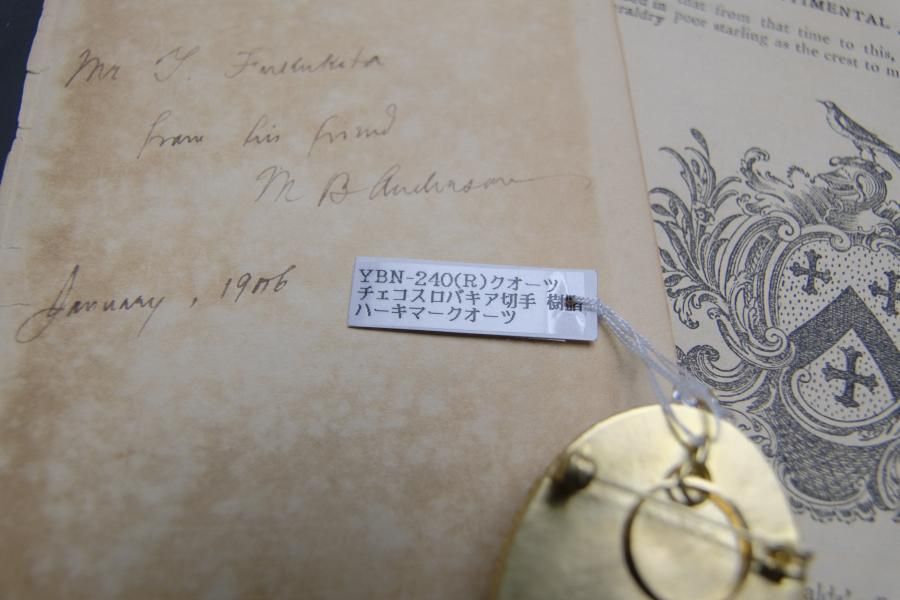 Mr T. Fukukita
from his friend
M B Anderson
January, 1906
YBN-240(R)クオーツ
チェコスロバキア切手 樹脂
ハーキマークオーツ
TIMENTAL
that from that time to this,
in poor starling as the crest to m